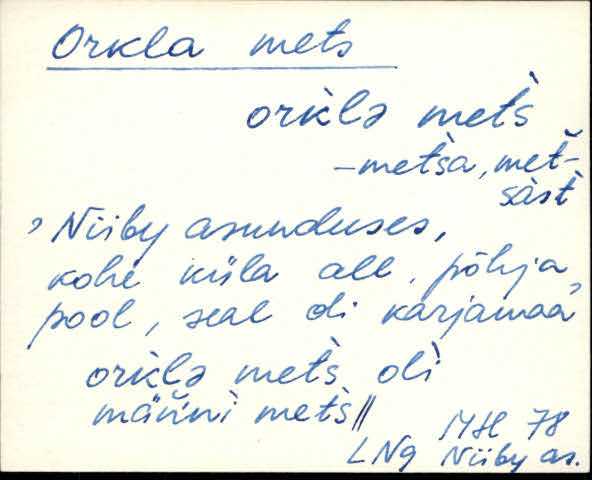 Orkla mets
ork̀lə met̀s
-met̀sa, met̆-
sàst̀
, Niiby asunduses,
kohe küla all, põhja
pool, seal oli karjamaa,
ork̀lə met̀s olì
män̆ni met̀s ||
MH 78
LNg Niiby as.